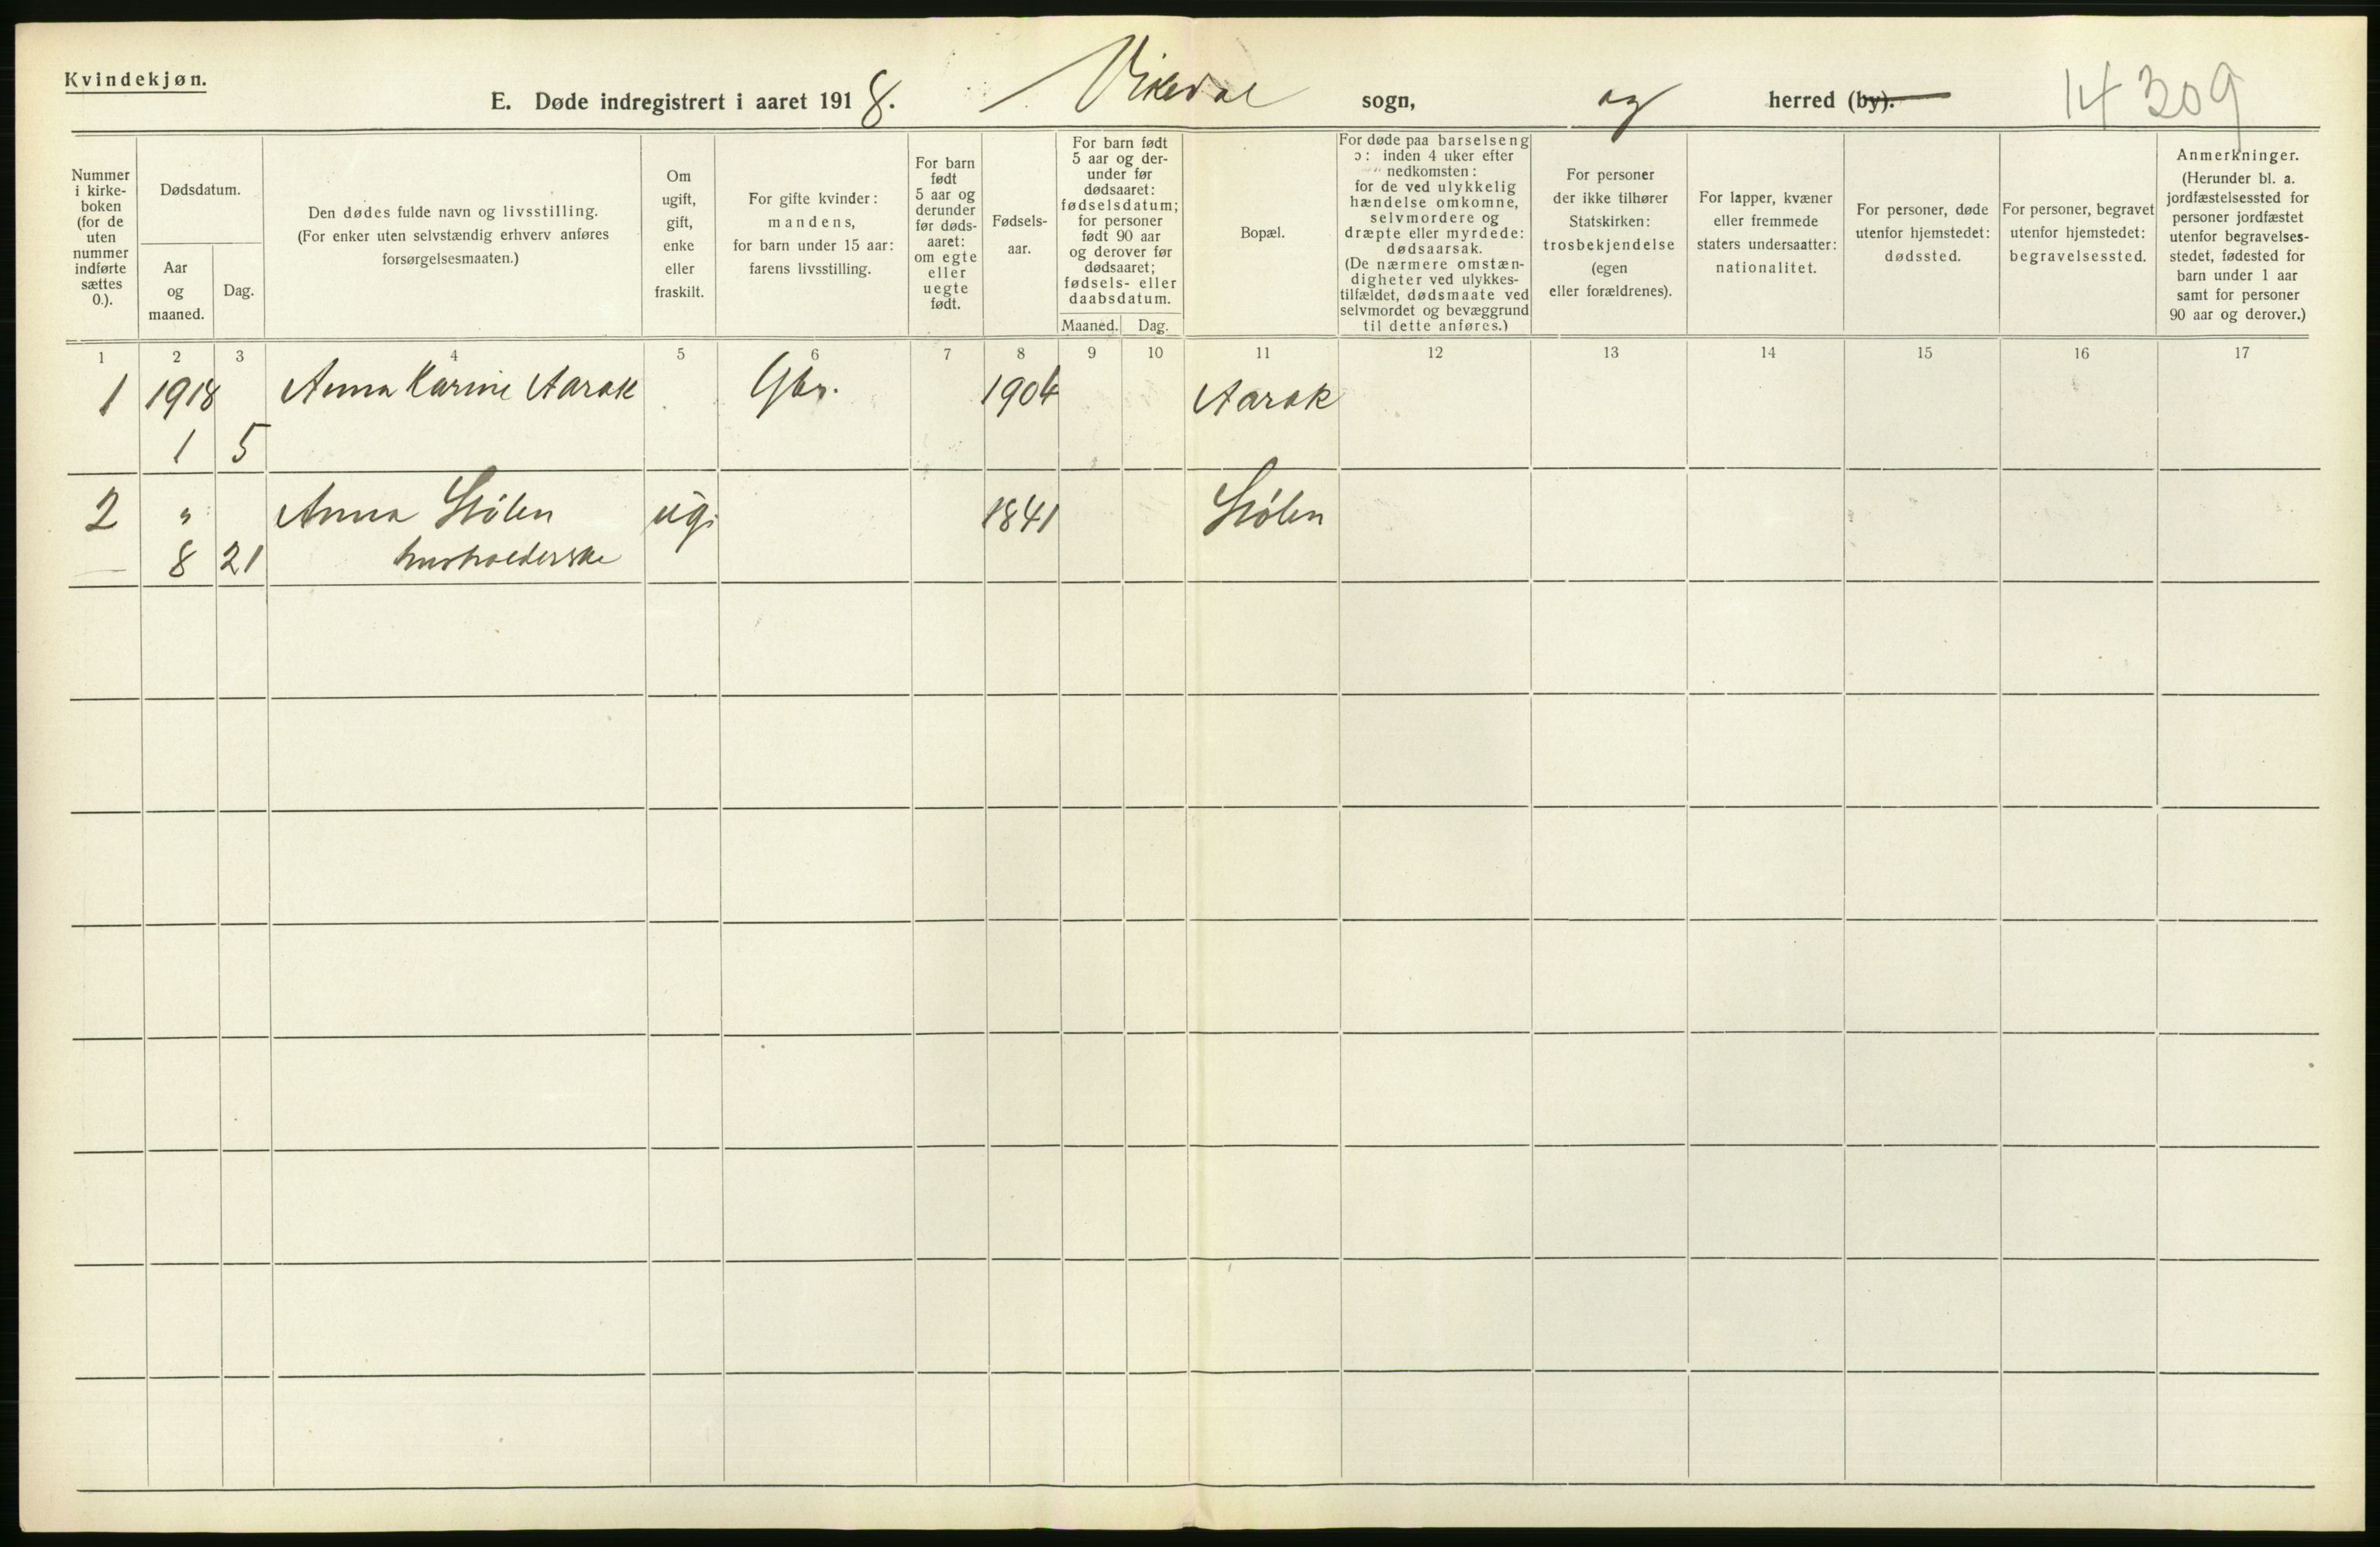 Kvindekjøn.
E. Døde indregistrert i aaret 1918. Vikedal sogn, og herred (by).
14 309
Nummer i kirkeboken (for de uten nummer indførte sættes 0.).
Dødsdatum.
Aar og maaned.
Dag.
Den dødes fulde navn og livsstilling.
(For enker uten selvstændig erhverv anføres
forsørgelsesmaaten.)
Om ugift, gift, enke eller fraskilt.
For gifte kvinder:
mandens,
for barn under 15 aar:
farens livsstilling.
For barn født 5 aar og derunder før dødsaaret: om egte eller uegte født.
Fødselsaar.
For barn født 5 aar og derunder før dødsaaret: fødselsdatum; for personer født 90 aar og derover før dødsaaret; fødsels- eller daabsdatum.
Maaned.
Dag.
Bopæl.
For døde paa barselseng
ɔ: inden 4 uker efter
nedkomsten:
for de ved ulykkelig
hændelse omkomne,
selvmordere og
dræpte eller myrdede:
dødsaarsak.
(De nærmere omstæn-
digheter ved ulykkes-
tilfældet, dødsmaate ved
selvmordet og bevæggrund
til dette anføres.)
For personer
der ikke tilhører
Statskirken:
trosbekjendelse
(egen
eller forældrenes).
For lapper, kvæner
eller fremmede
staters undersaatter:
nationalitet.
For personer, døde
utenfor hjemstedet:
dødssted.
For personer, begravet
utenfor hjemstedet:
begravelsessted.
Anmerkninger.
(Herunder bl. a.
jordfæstelsessted for
personer jordfæstet
utenfor begravelses-
stedet, fødested for
barn under 1 aar
samt for personer
90 aar og derover.)
1 2 3 4 5 6 7 8 9 10 11 12 13 14 15 16 17
1 1918 Anna Karine Aarak Gbr. 1904 Aarak
1 5
2 " Anna Stølen ug. 1841 Stølen
8 21 husholderske